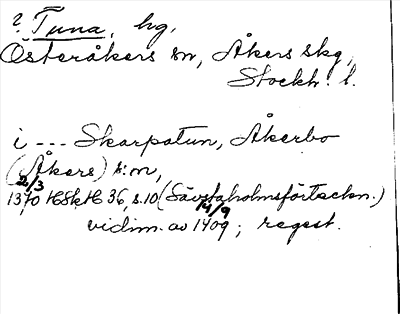 ? Tuna, hg,
Österåkers sn, Åkers skg,
Stockh. l.
i --- Skarpatun, Åkerbo
(Åkers) s:n,
2/3
1370 HSkH 36, s.10 (Sävstaholmsförteckn.)
14/9
vidim. av 1409; regest.